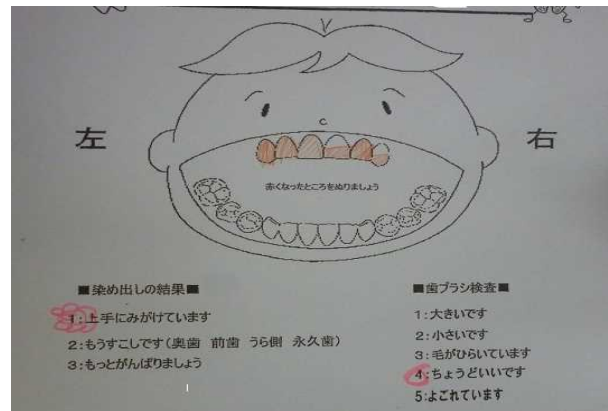 左
右
赤くなったところをぬりましょう
■染め出しの結果■
1:上手にみがけています
2:もうすこしです(奥歯 前歯 うら側 永久歯)
3:もっとがんばりましょう
■歯ブラシ検査■
1:大きいです
2:小さいです
3:毛がひらいています
4:ちょうどいいです
5:よごれています